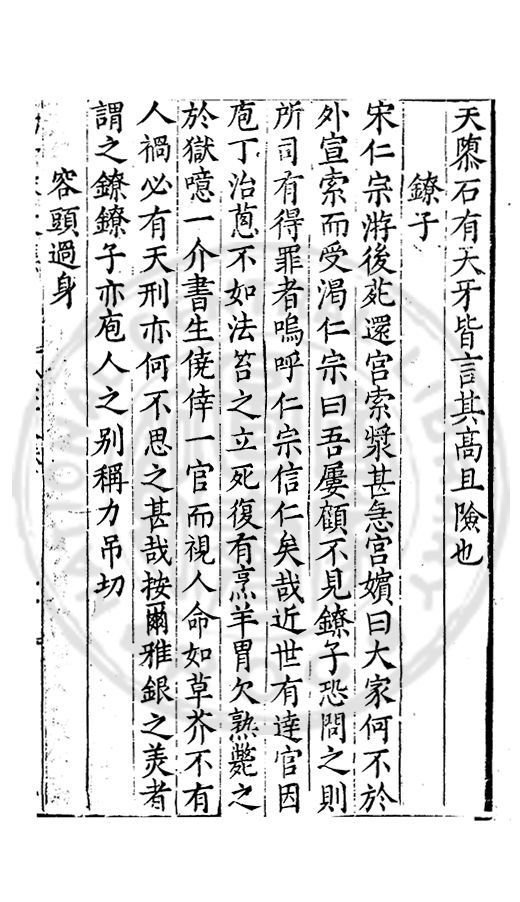 天隳石有天牙皆言其高且險也
鐐子
宋仁宗游後苑還宮索漿甚急宮嬪曰大家何不於
外宣索而受渴仁宗曰吾屢顧不見鐐子恐問之則
所司有得罪者嗚呼仁宗信仁矣哉近世有達官因
庖丁治蔥不如法笞之立死復有烹羊胃欠熟斃之
於獄噫一介書生僥倖一官而視人命如草芥不有
人禍必有天刑亦何不思之甚哉按爾雅銀之美者
謂之鐐鐐子亦庖人之别稱力吊切
容頭過身